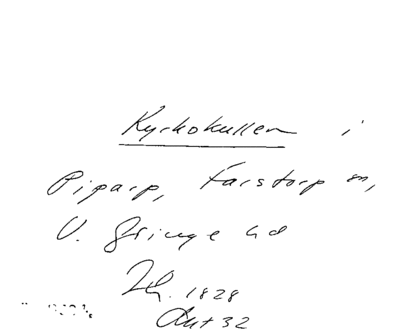 Kyrkokullen i
Piparp, Farstorp sn,
V. Göinge hd
1828
32